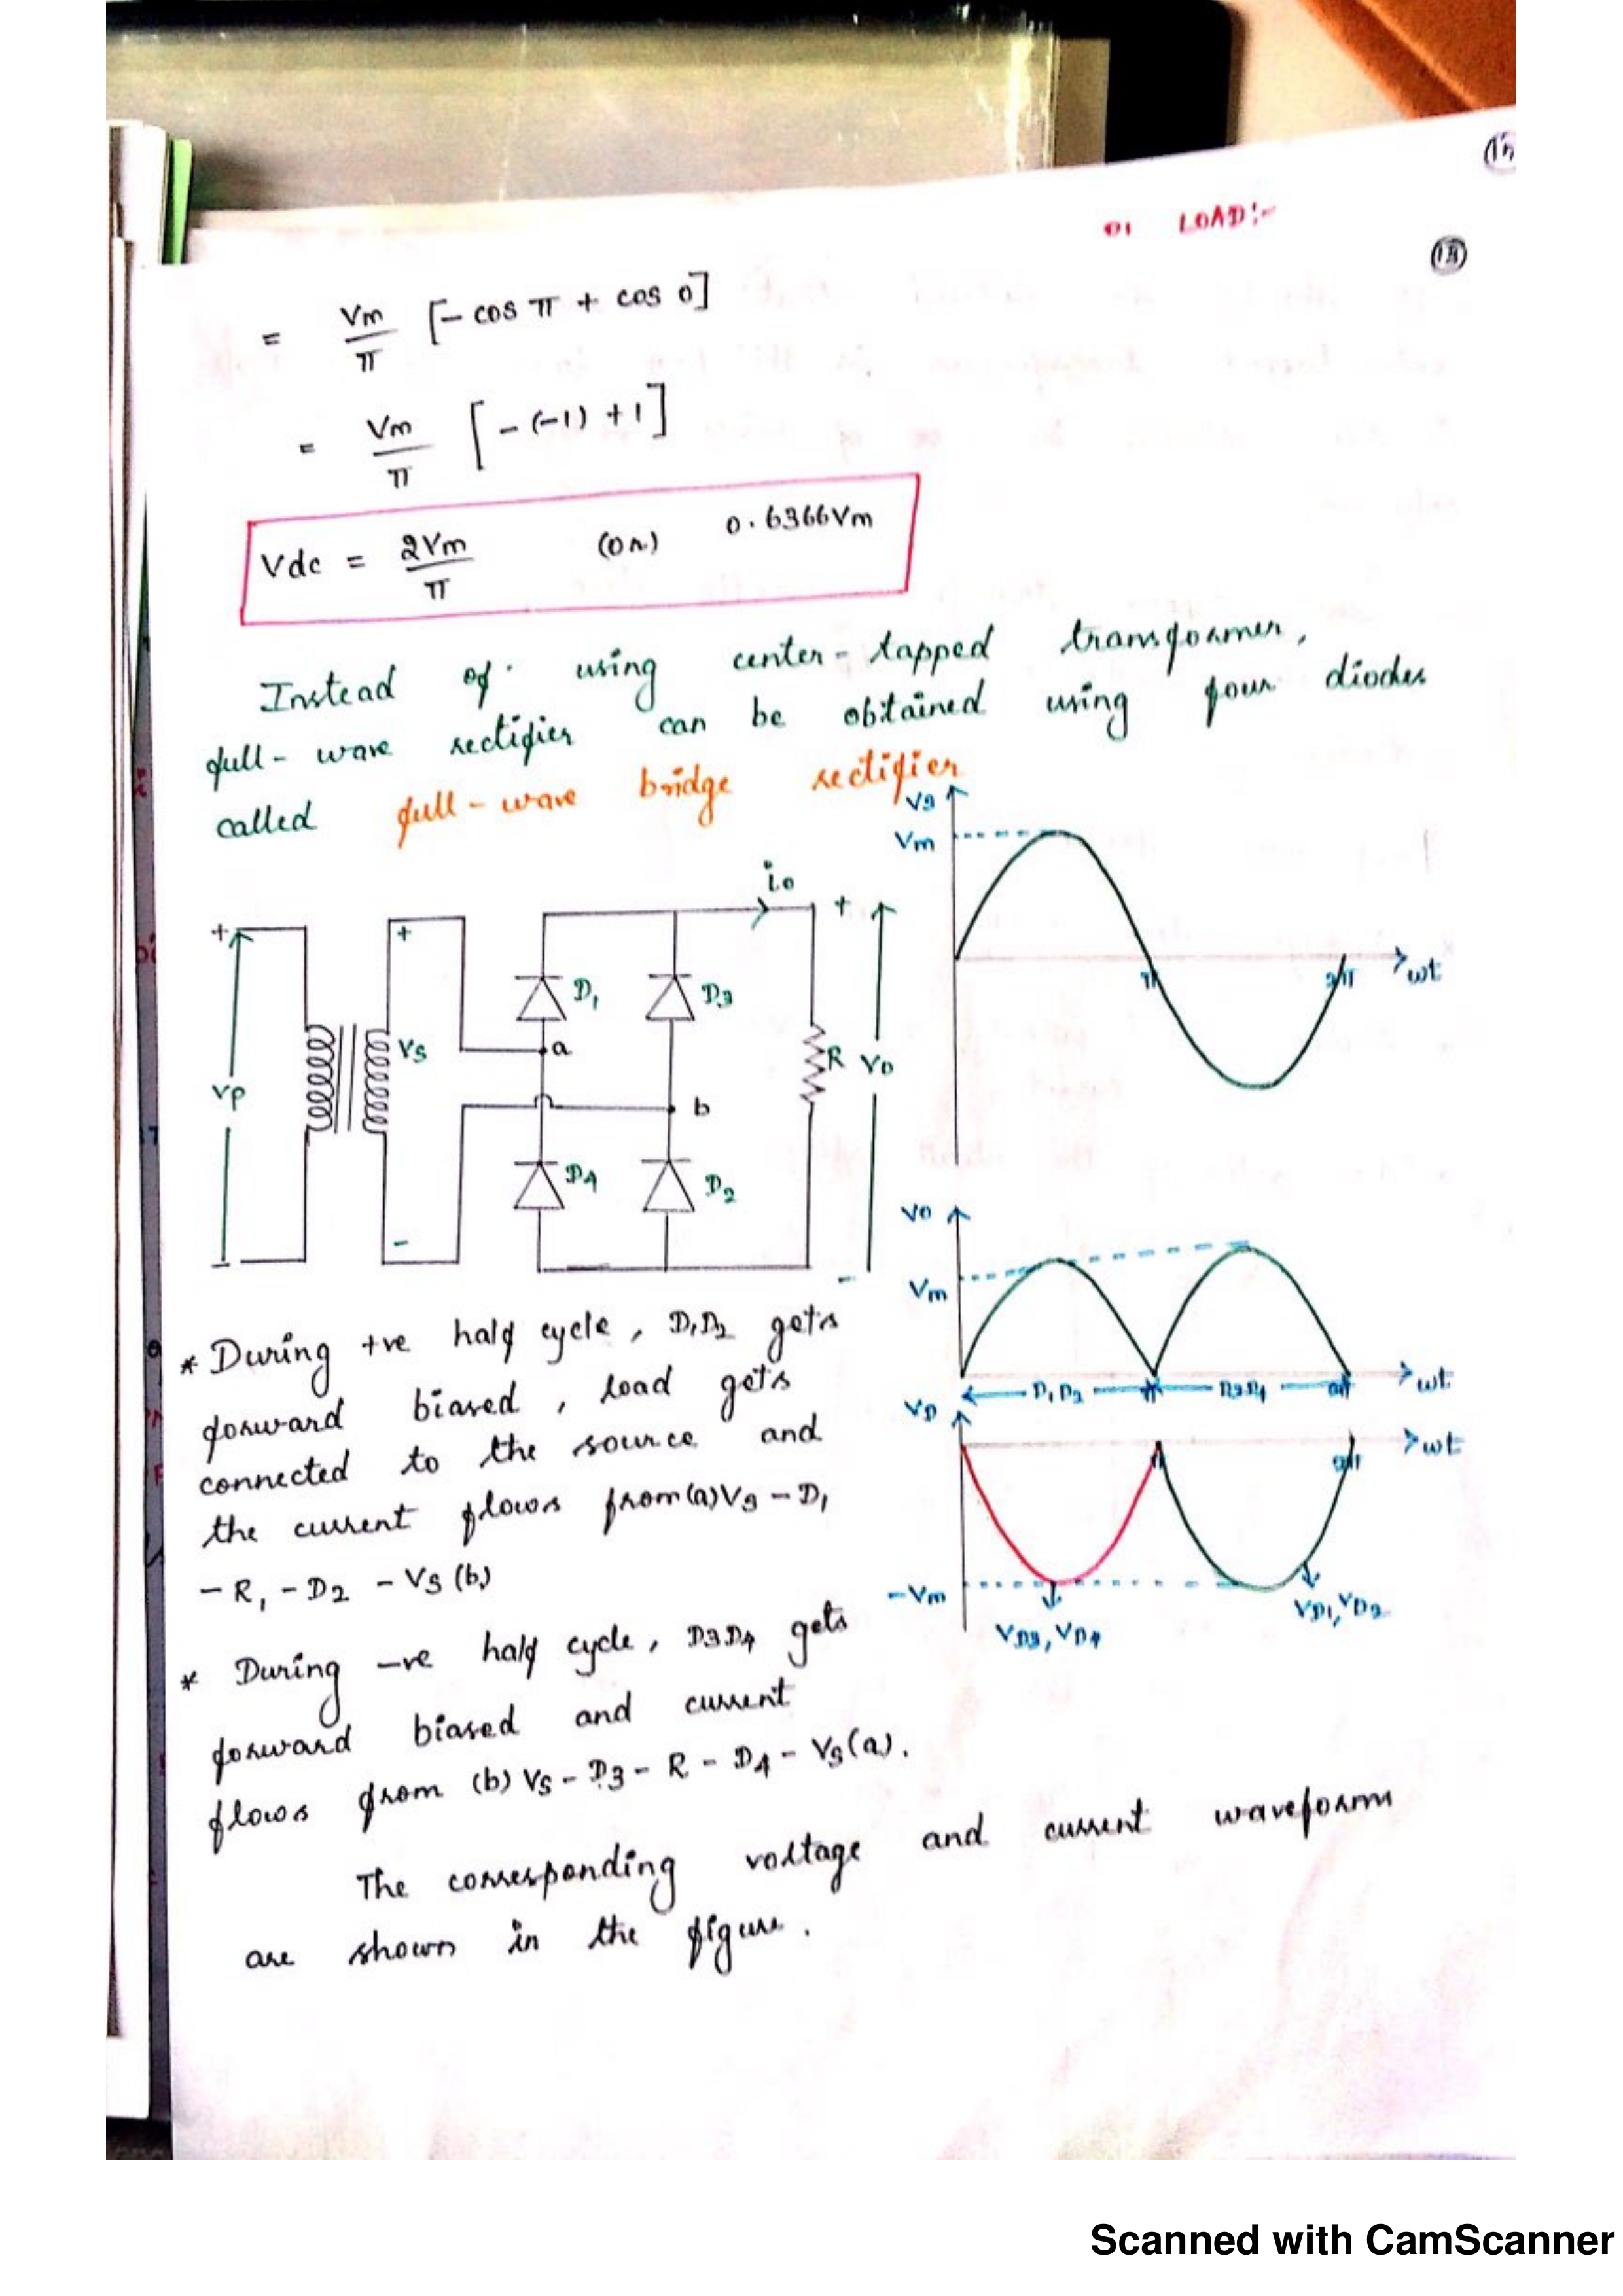 LOAD:-
18
= Vm/π [- cos π + cos 0]
= Vm/π [-(-1) +1]
Vdc = 2Vm/π (or) 0.6366Vm
Instead of using center-tapped transformer,
full-wave rectifier can be obtained using four diodes
called full-wave bridge rectifier
Vs
Vm
π
2π
wt
io
+
+
+
vp
Vs
D1
D3
a
b
D4
D2
R
Vo
-
-
-
Vo
Vm
D1D2
π
D3D4
2π
wt
VD
wt
π
2π
-Vm
VD3, VD4
VD1, VD2
* During +ve half cycle, D1D2 gets
forward biased, load gets
connected to the source and
the current flows from (a) Vs - D1
- R, - D2 - Vs (b)
* During -ve half cycle, D3D4 gets
forward biased and current
flows from (b) Vs - D3 - R - D4 - Vs(a).
The corresponding voltage and current waveform
are shown in the figure.
Scanned with CamScanner